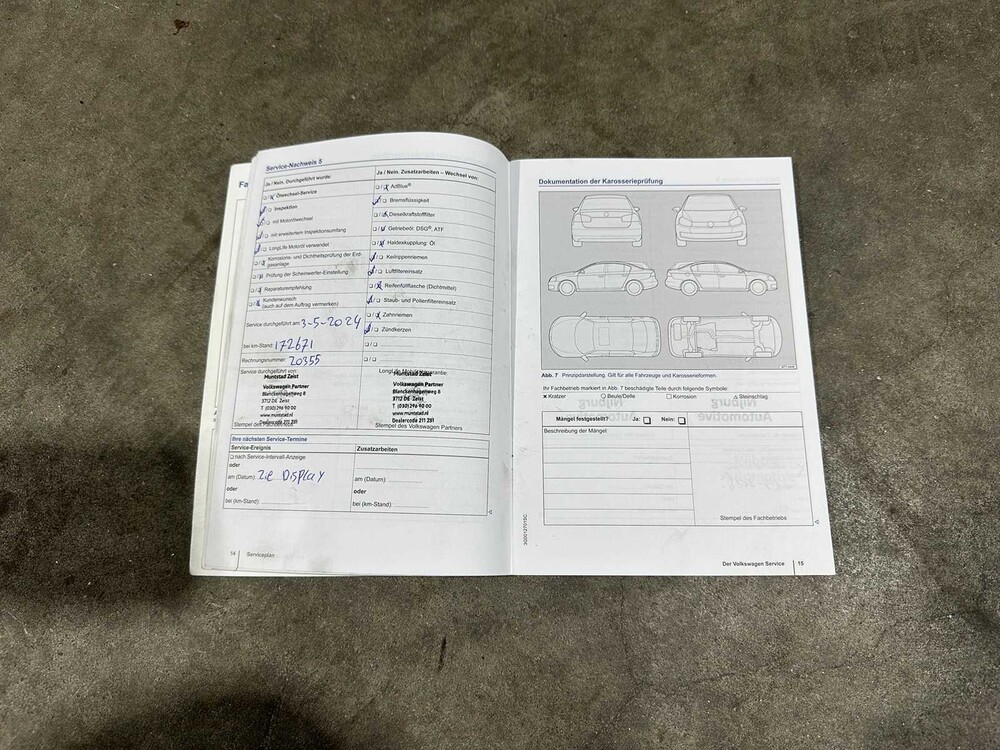 Fa
Service-Nachweis 5
Ja / Nein. Durchgeführt wurde:
Ölwechsel-Service
Inspektion
mit Motorölwechsel
mit erweitertem Inspektionsumfang
LongLife Motoröl verwendet
Korrosions- und Dichtheitsprüfung der Erd-
gasanlage
Prüfung der Scheinwerfer-Einstellung
Reparaturempfehlung
Kundenwunsch
(auch auf dem Auftrag vermerken)
Service durchgeführt am: 3-5-2024
bei km-Stand: 172671
Rechnungsnummer: 20355
Service durchgeführt von:
Muntstad Zeist
Volkswagen Partner
Blanckenhagenweg 8
3712 DE Zeist
T (030) 296 90 00
www.muntstad.nl
Dealercode 211 251
Stempel des Fachbetriebs
Ja / Nein. Zusatzarbeiten – Wechsel von:
AdBlue®
Bremsflüssigkeit
Dieselkraftstofffilter
Getriebeöl: DSG®, ATF
Haldexkupplung: Öl
Keilrippenriemen
Luftfiltereinsatz
Reifenfüllflasche (Dichtmittel)
Staub- und Pollenfiltereinsatz
Zahnriemen
Zündkerzen
Muntstad Zeist
Volkswagen Partner
Blanckenhagenweg 8
3712 DE Zeist
T (030) 296 90 00
www.muntstad.nl
Dealercode 211 251
Stempel des Volkswagen Partners
Ihre nächsten Service-Termine
Service-Ereignis
Zusatzarbeiten
nach Service-Intervall-Anzeige
oder
am (Datum): Zie Display
am (Datum):
oder
oder
bei (km-Stand):
bei (km-Stand):
14 Serviceplan
Dokumentation der Karosserieprüfung
Abb. 7 Prinzipdarstellung. Gilt für alle Fahrzeuge und Karosserieformen.
Ihr Fachbetrieb markiert in Abb. 7 beschädigte Teile durch folgende Symbole:
Kratzer Beule/Delle Korrosion Steinschlag
Mängel festgestellt? Ja: Nein:
Beschreibung der Mängel
Stempel des Fachbetriebs
3G0012701SC
Der Volkswagen Service 15